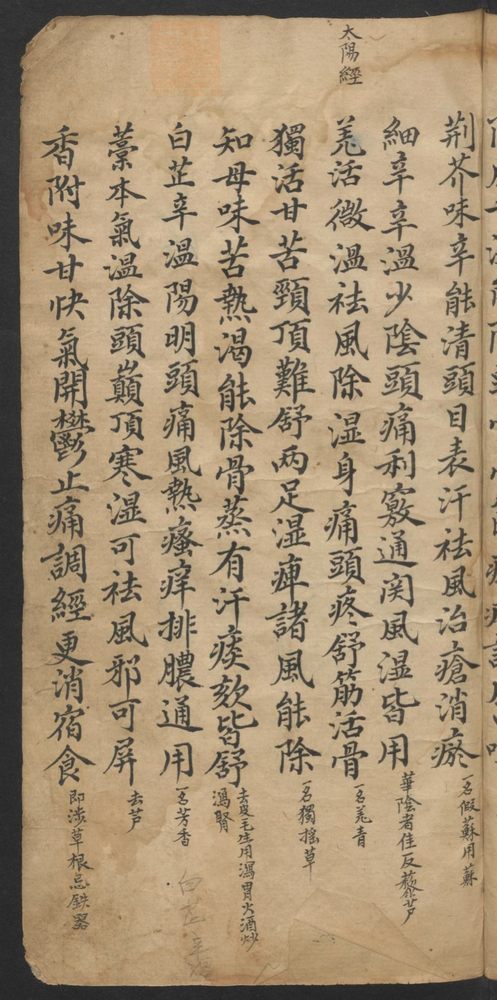 荆芥味辛能清頭目表汗祛風治瘡消瘀
一名假蘇用蘇
細辛辛溫少陰頭痛利竅通関風湿皆用
華陰者佳反藜芦
太陽經
羗活微溫祛風除湿身痛頭疼舒筋活骨
一名羗青
獨活甘苦頸頂難舒両足湿痺諸風能除
一名獨摇草
知母味苦熱渴能除骨蒸有汗痰欬皆舒
去皮毛生用瀉胃火酒炒
瀉腎
白芷辛溫陽明頭痛風熱瘙痒排膿通用
一名芳香
藁本氣溫除頭巔頂寒湿可祛風邪可屏
去芦
香附味甘快氣開鬱止痛調經更消宿食
即莎草根忌鉄器
白芷辛